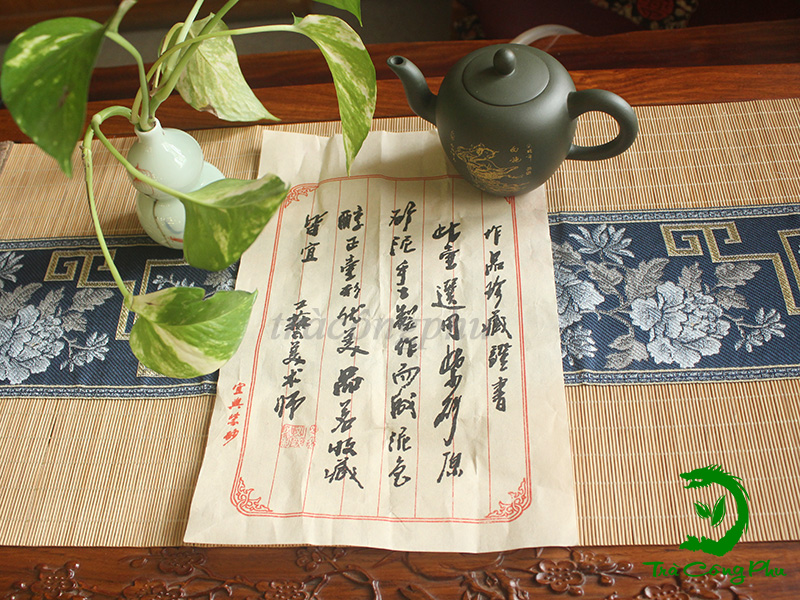 作品珍藏證书
此壶選用紫砂原
矿泥手工製作而成泥色
醇正壶形优美品茗收藏
皆宜
工藝美术师
宜興紫砂
tràcôngphu
Trà Công Phu